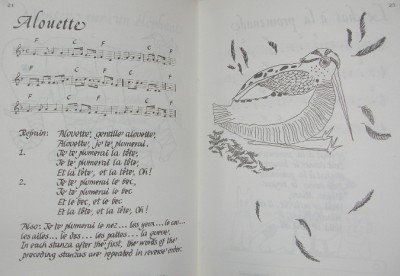 Alouette
F C F C F
F C F C F
Refrain: Alouette, gentille alouette,
Alouette, je te plumerai.
1. Je te plumerai la tête,
Je te plumerai la tête,
Et la tête, et la tête, Oh!
2. Je te plumerai le bec,
Je te plumerai le bec,
Et le bec, et le bec
Et la tête, et la tête, Oh!
Also: Je te plumerai le nez... les yeux... le cou...
les ailes... le dos... les pattes... la queue.
In each stanza after the first, the words of the
preceding stanzas are repeated in reverse order.